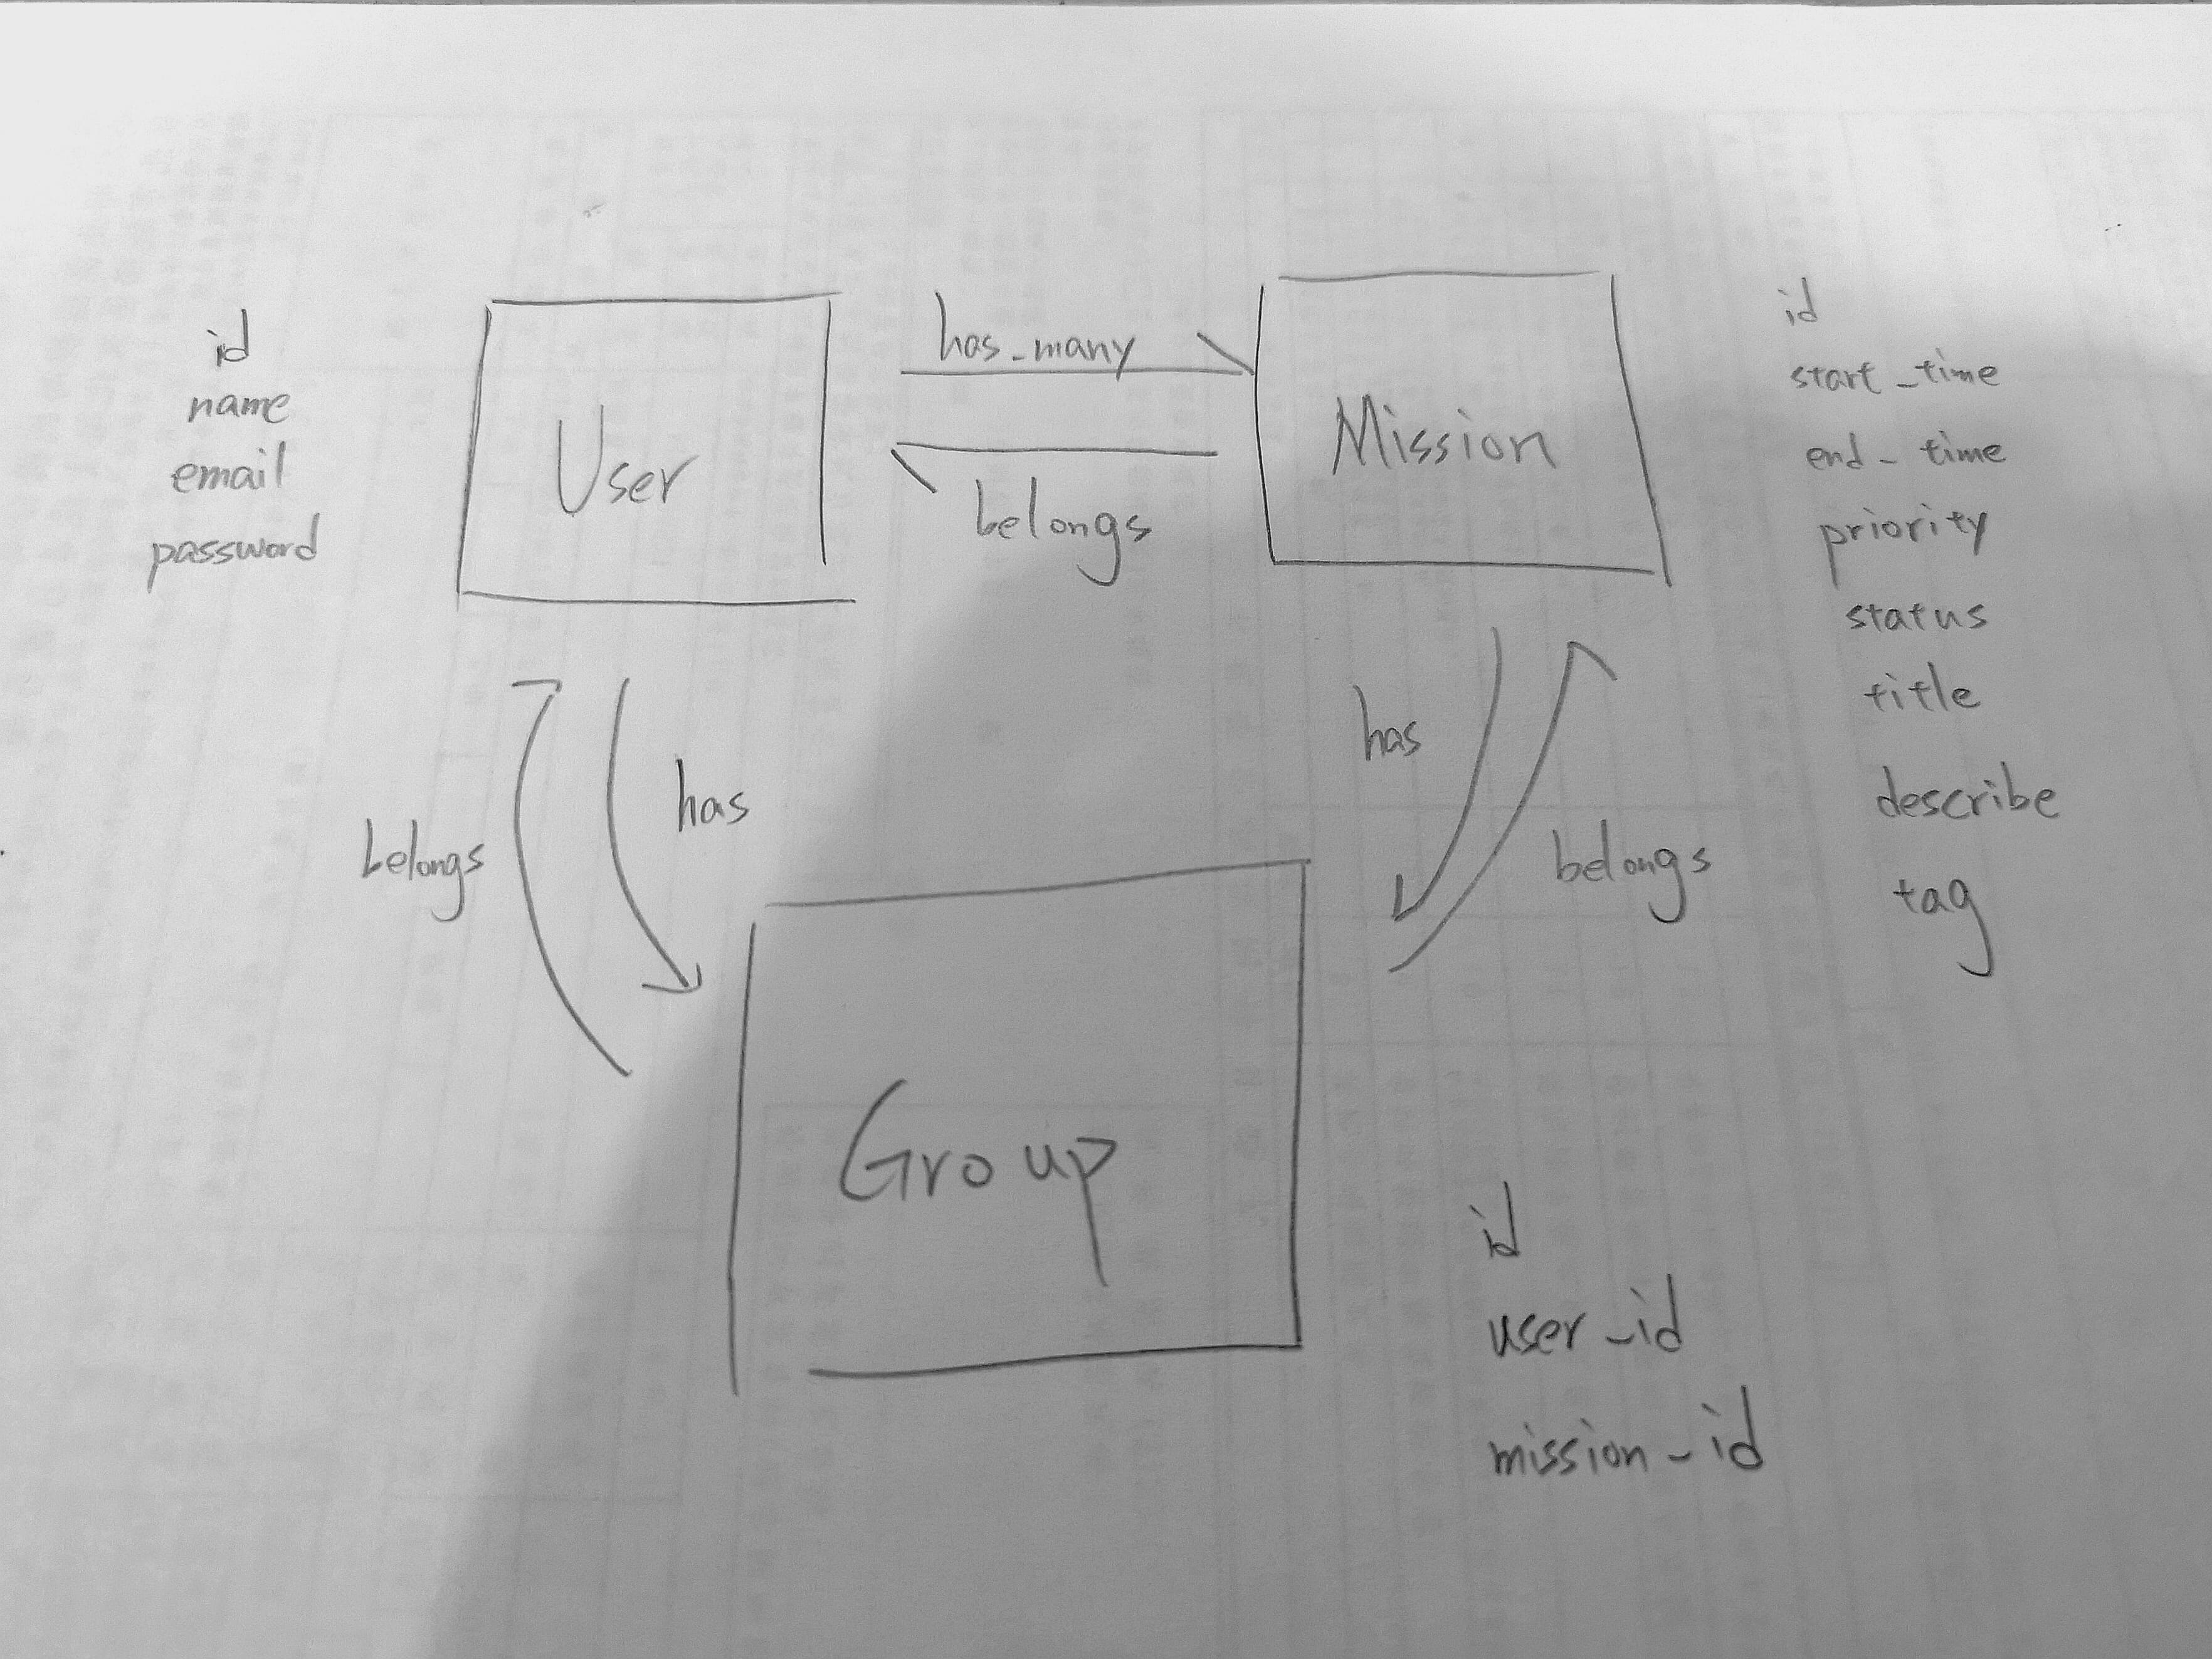 id
name
email
password
User
has_many
belongs
Mission
id
start_time
end_time
priority
status
title
describe
tag
belongs
has
has
belongs
Group
id
user_id
mission_id